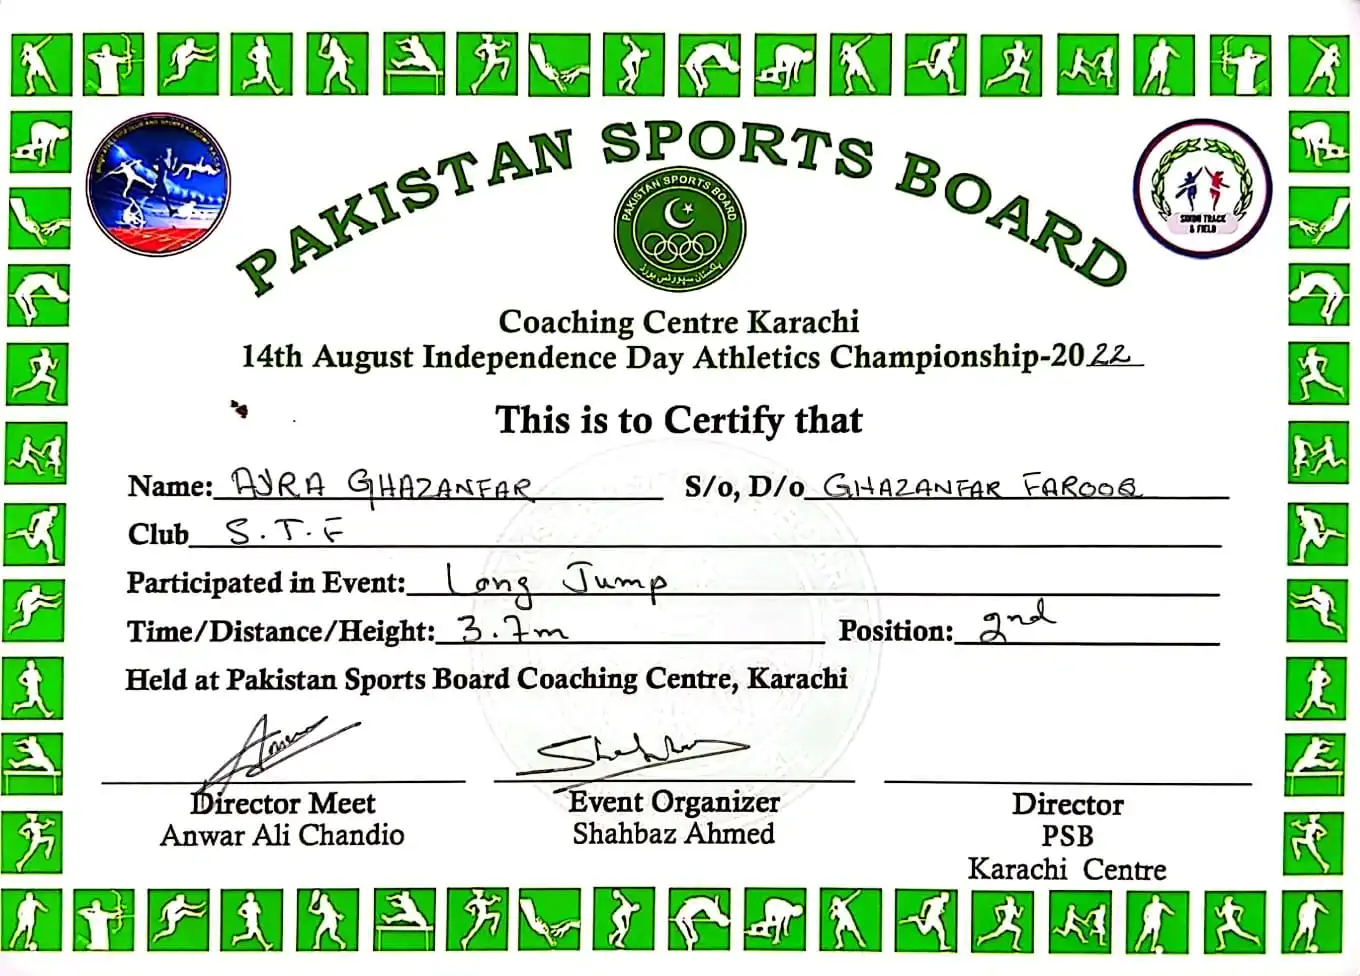 PAKISTAN SPORTS BOARD
PAKISTAN SPORTS BOARD
پاکستان سپورٹس بورڈ
SINDH TRACK
& FIELD
Coaching Centre Karachi
14th August Independence Day Athletics Championship-2022
This is to Certify that
Name: AJRA GHAZANFAR S/o, D/o GHAZANFAR FAROOQ
Club S.T.F
Participated in Event: Long Jump
Time/Distance/Height: 3.7m Position: 2nd
Held at Pakistan Sports Board Coaching Centre, Karachi
Shahbaz
Director Meet Event Organizer Director
Anwar Ali Chandio Shahbaz Ahmed PSB
Karachi Centre